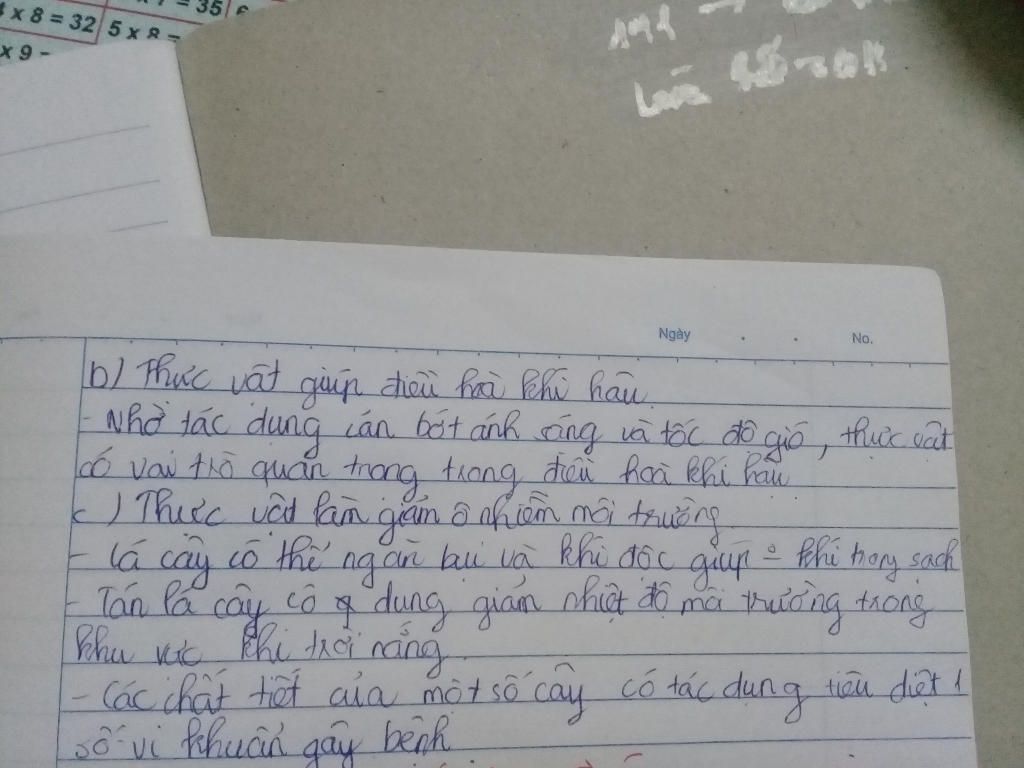 x 8 = 32
5 x 8 =
= 35
x 9
Ngày
No.
b) Thực vật giúp điều hoà khí hậu.
- Nhờ tác dụng cản bớt ánh sáng và tốc độ gió, thực vật
có vai trò quan trọng trong điều hoà khí hậu
c) Thực vật làm giảm ô nhiễm môi trường
- Lá cây có thể ngăn bụi và khí độc giúp khí trong sạch
- Tán lá cây có dụng giảm nhiệt độ môi trường trong
khu vực khi trời nắng.
- Các chất tiết của một số cây có tác dụng tiêu diệt 1
số vi khuẩn gây bệnh